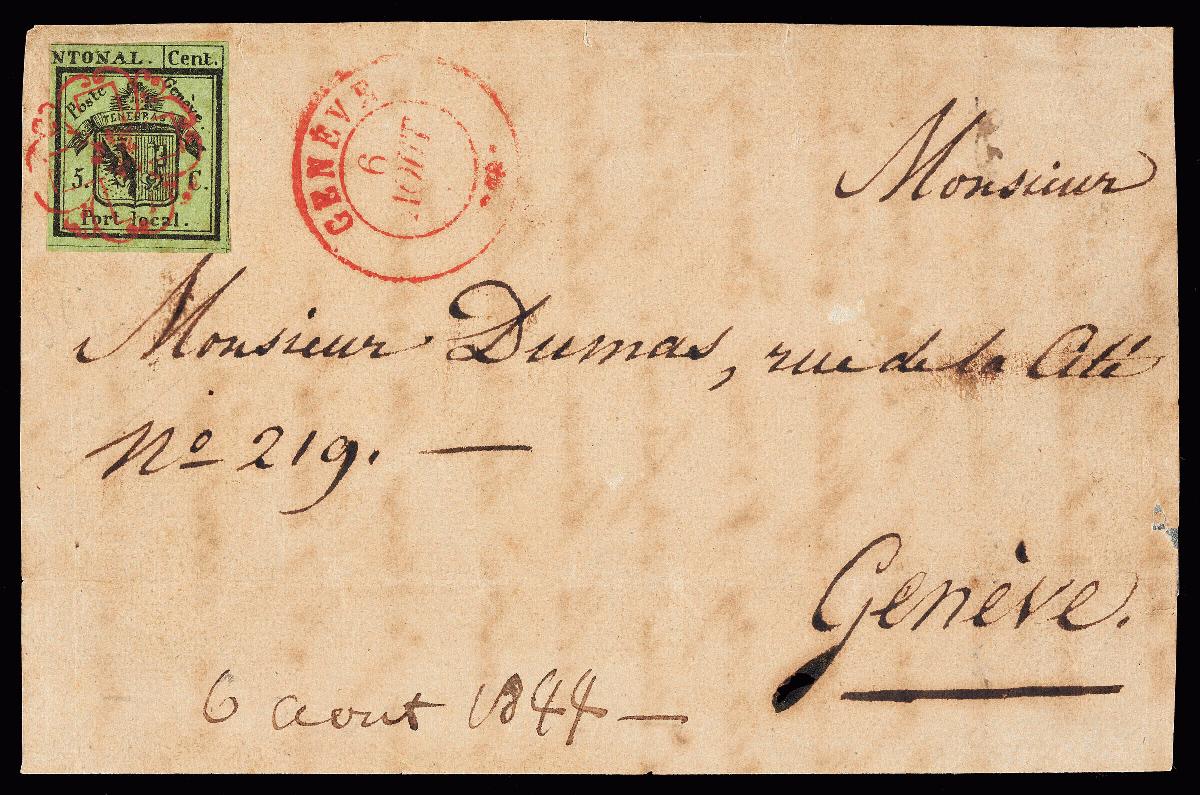 NTONAL. Cent.
Poste Genève.
TENEBRAS
5. C.
Port local.
GENÈVE
6
AOUT
Monsieur
Monsieur Dumas, rue de la Cité
No 219. —
Genève.
6 aout 1844 —